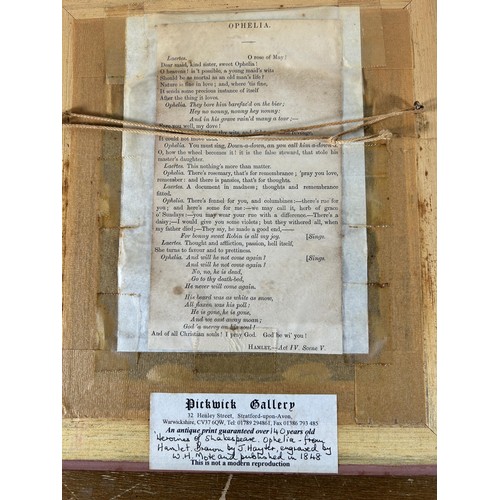 OPHELIA.
Laertes. O rose of May!
Dear maid, kind sister, sweet Ophelia!
O heavens! is't possible, a young maid's wits
Should be as mortal as an old man's life?
Nature is fine in love; and, where 'tis fine,
It sends some precious instance of itself
After the thing it loves.
Ophelia. They bore him barefac'd on the bier;
Hey no nonny, nonny hey nonny:
And in his grave rain'd many a tear:—
Fare you well, my dove!
It could not move thus.
Ophelia. You must sing, Down-a-down, an you call him a-down-a.
O, how the wheel becomes it! it is the false steward, that stole his
master's daughter.
Laertes. This nothing's more than matter.
Ophelia. There's rosemary, that's for remembrance; 'pray you love,
remember: and there is pansies, that's for thoughts.
Laertes. A document in madness; thoughts and remembrance
fitted.
Ophelia. There's fennel for you, and columbines:—there's rue for
you; and here's some for me:—we may call it, herb of grace
o' Sundays:—you may wear your rue with a difference.—There's a
daisy;—I would give you some violets; but they withered all, when
my father died;—They say, he made a good end,—
For bonny sweet Robin is all my joy. [Sings.
Laertes. Thought and affliction, passion, hell itself,
She turns to favour and to prettiness.
Ophelia. And will he not come again? [Sings.
And will he not come again?
No, no, he is dead,
Go to thy death-bed,
He never will come again.
His beard was as white as snow,
All flaxen was his poll:
He is gone, he is gone,
And we cast away moan;
God 'a mercy on his soul!
And of all Christian souls! I pray God. God be wi' you!
HAMLET.—Act IV. Scene V.
Pickwick Gallery
32 Henley Street, Stratford-upon-Avon,
Warwickshire, CV37 6QW, Tel: 01789 294861, Fax 01386 793 485
An antique print guaranteed over 140 years old
Heroines of Shakespeare. Ophelia - from
Hamlet. Drawn by J. Hayter, engraved by
W.H. Mote and published in 1848
This is not a modern reproduction